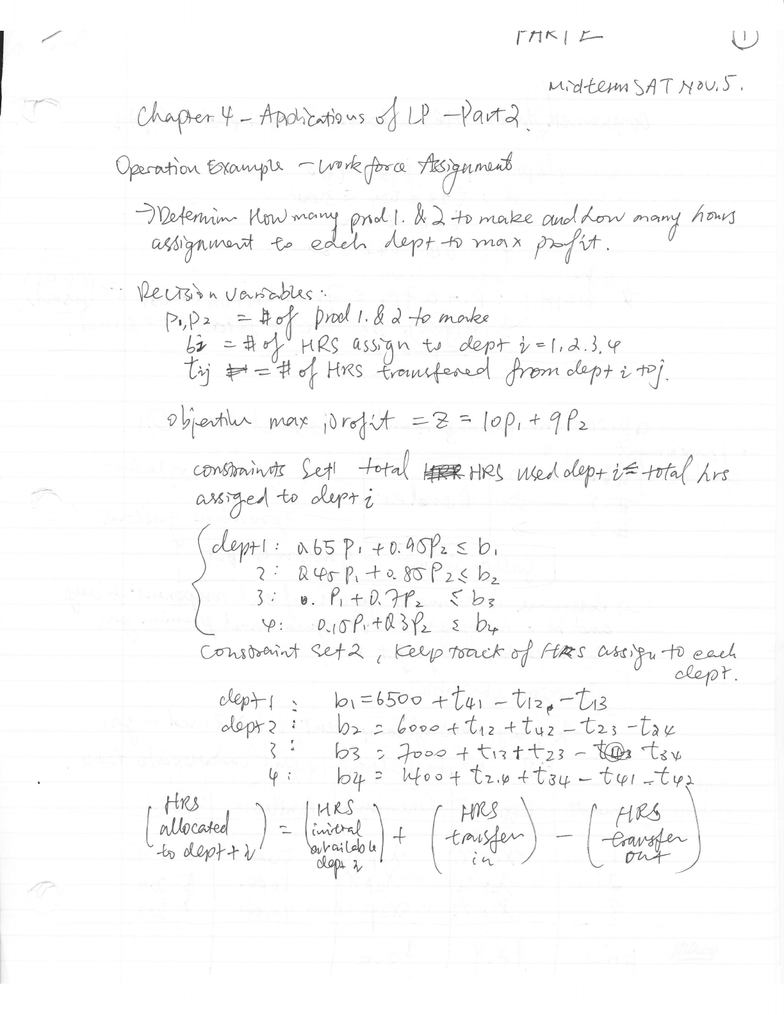 PART 2
1
Midterm SAT NOV. 5.
Chapter 4 - Applications of LP - Part 2.
Operation Example - Workforce Assignment
→ Determin How many prod 1. & 2 to make and how many hours
assignment to each dept to max profit.
Decision variables:
P1, P2 = # of prod 1. & 2 to make
bi = # of HRS assign to dept i = 1, 2. 3, 4
tij = # of HRS transfered from dept i to j.
Objective max profit = Z = 10P1 + 9P2
constraints Set 1 total HRS used dept i ≤ total hrs
assiged to dept i
dept 1: 0.65 P1 + 0.95P2 ≤ b1
2: 0.45 P1 + 0.85 P2 ≤ b2
3: P1 + 0.7P2 ≤ b3
4: 0.15P1 + 0.3P2 ≤ b4
Constraint set 2, keep track of HRS assign to each
dept.
dept 1: b1 = 6500 + t41 - t12 - t13
dept 2: b2 = 6000 + t12 + t42 - t23 - t24
3: b3 = 7000 + t13 + t23 - t34
4: b4 = 1400 + t24 + t34 - t41 - t42
(HRS allocated to dept i) = (HRS initial available dept i) + (HRS transfer in) - (HRS transfer out)